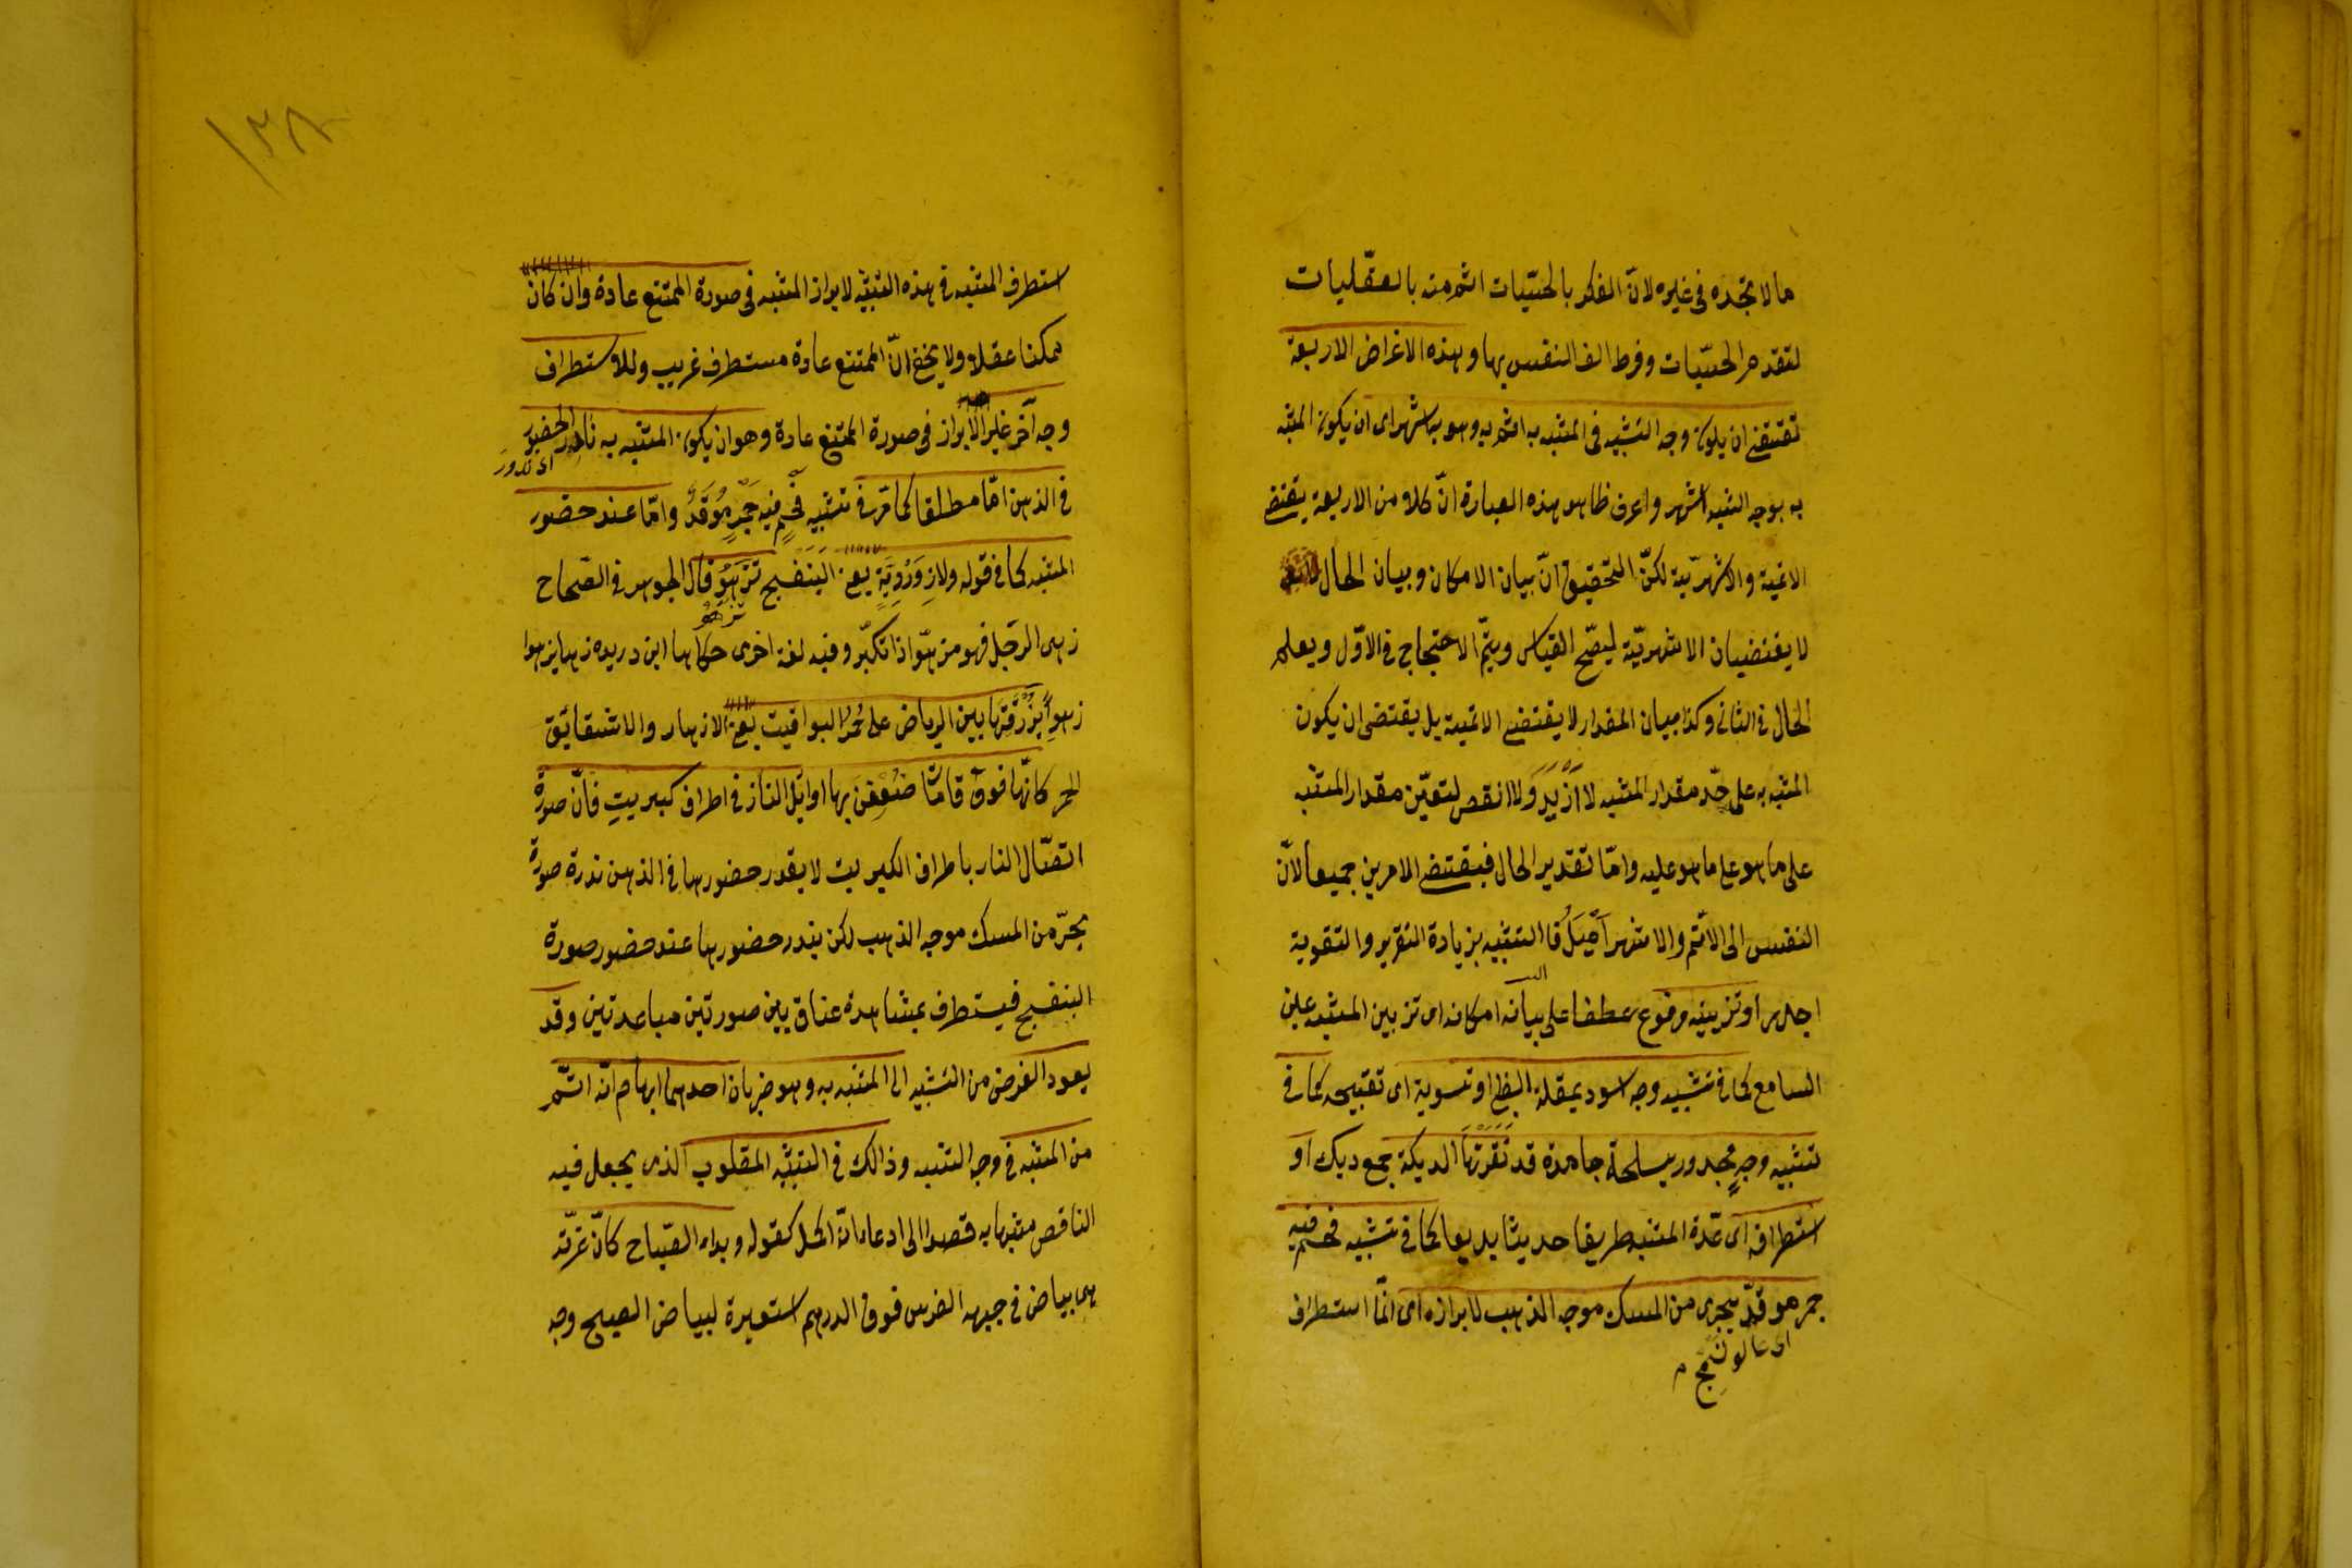 ما لا تجده في غيره لانّ الفكر بالحسّيّات اتمّ منه بالعقليات
لتقدم الحسّيّات وفرط الف النفس بها وهذه الاغراض الاربعة
تقتضى ان يكون وجه التشبيه في المشبه به اتم وهو به اشهر اى ان يكون المشبّه
به بوجه الشبه اشهر واعرف ظاهر هذه العبارة انّ كلا من الاربعة يقتضى
الاتمية والاشهرية لكنّ التحقيق انّ بيان الامكان وبيان الحال
لا يقتضيان الا الاشهريّة ليصّح القياس ويتمّ الاحتجاج في الاوّل ويعلم
الحال في الثانى وكذا بيان المقدار لا يقتضى الاتمية بل يقتضى ان يكون
المشبه به على حّد مقدار المشبه لا ازيد ولا انقص لتعيّن مقدار المشبه
على ما هو على ما هو عليه وامّا تقرير الحال فيقتضى الامرين جميعا لانّ
النفس الى الاتّم والاشهر اَمْيَلُ فا التشبيه بزيادة التقرير والتقوية
اجدر او تزيينه مرفوع عطفا على بيان امكانه اى تزيين المشبه عين
السامع كما في تشبيه وجه اسود بمقلة الظبى او تسوية اى تقبيحه كما في
تشبيه وجهٍ مجدور بسلحة جامدة قد نَقَرَتْهَا الديكة جمع ديك او
استطرافه اى عّدة المشبه طريقا حديثا بديعا كما في تشبيه فحم فيه
جمر موقدّ ببحر من المسك موجه الذهب لابرازه اى انّما استطراف
استطرف المشبه في هذه التشبيه لابراز المشبه في صورة الممتنع عادة وان كان
ممكنا عقلا ولا يخفى انّ الممتنع عادة مستطرف غريب وللاستطراف
وجه آخر غير الابراز في صورة الممتنع عادة وهو ان يكون المشبه به نادر الحضور
اى ندور
في الذهن امّا مطلقا كما مرّ في تشبيه فحمٍ فيه جمرٌ مُوقَدٌ وامّا عند حضور
المشبه كما في قوله ولازَوَرْدِيَّةٍ يعنى البنفسج تَزْهُو قال الجوهرى في الصّحاح
تزهو
زهى الرجل فهو مزهوّ اذا تكبّر وفيه لغة اخرى حكاها ابن دريد زها يزهوا
زهوا بِزُرْقَتِها بين الرياض على حُمْرِ اليواقيت يعنى الازهار والاشقائق
الحمر كانّها فوق قامات ضَعُفْنَ بها اوائل النار في اطراف كبريتِ فانّ صورة
اتّصال النار باطراف الكبريت لا يقدر حضورها في الذهن ندرة صورة
بحرّ من المسك موجه الذهب لكن يندر حضورها عند حضور صورة
البنفسج فيستطرف بمشاهدة عناق بين صورتين مباعدتين وقد
يعود الغرض من التشبيه الى المشبه به وهو ضربان احدهما ايهام انّه اتّم
من المشبه في وجه الشبه وذالك في التشبيه المقلوب الذى يجعل فيه
الناقص مشبها به قصدا الى ادعاء انّه اكمل كقوله وبدا الصّباح كانّ غرّته
هى بياض في جبهة الفرس فوق الدرهم استعيرة لبياض الصبح وجه